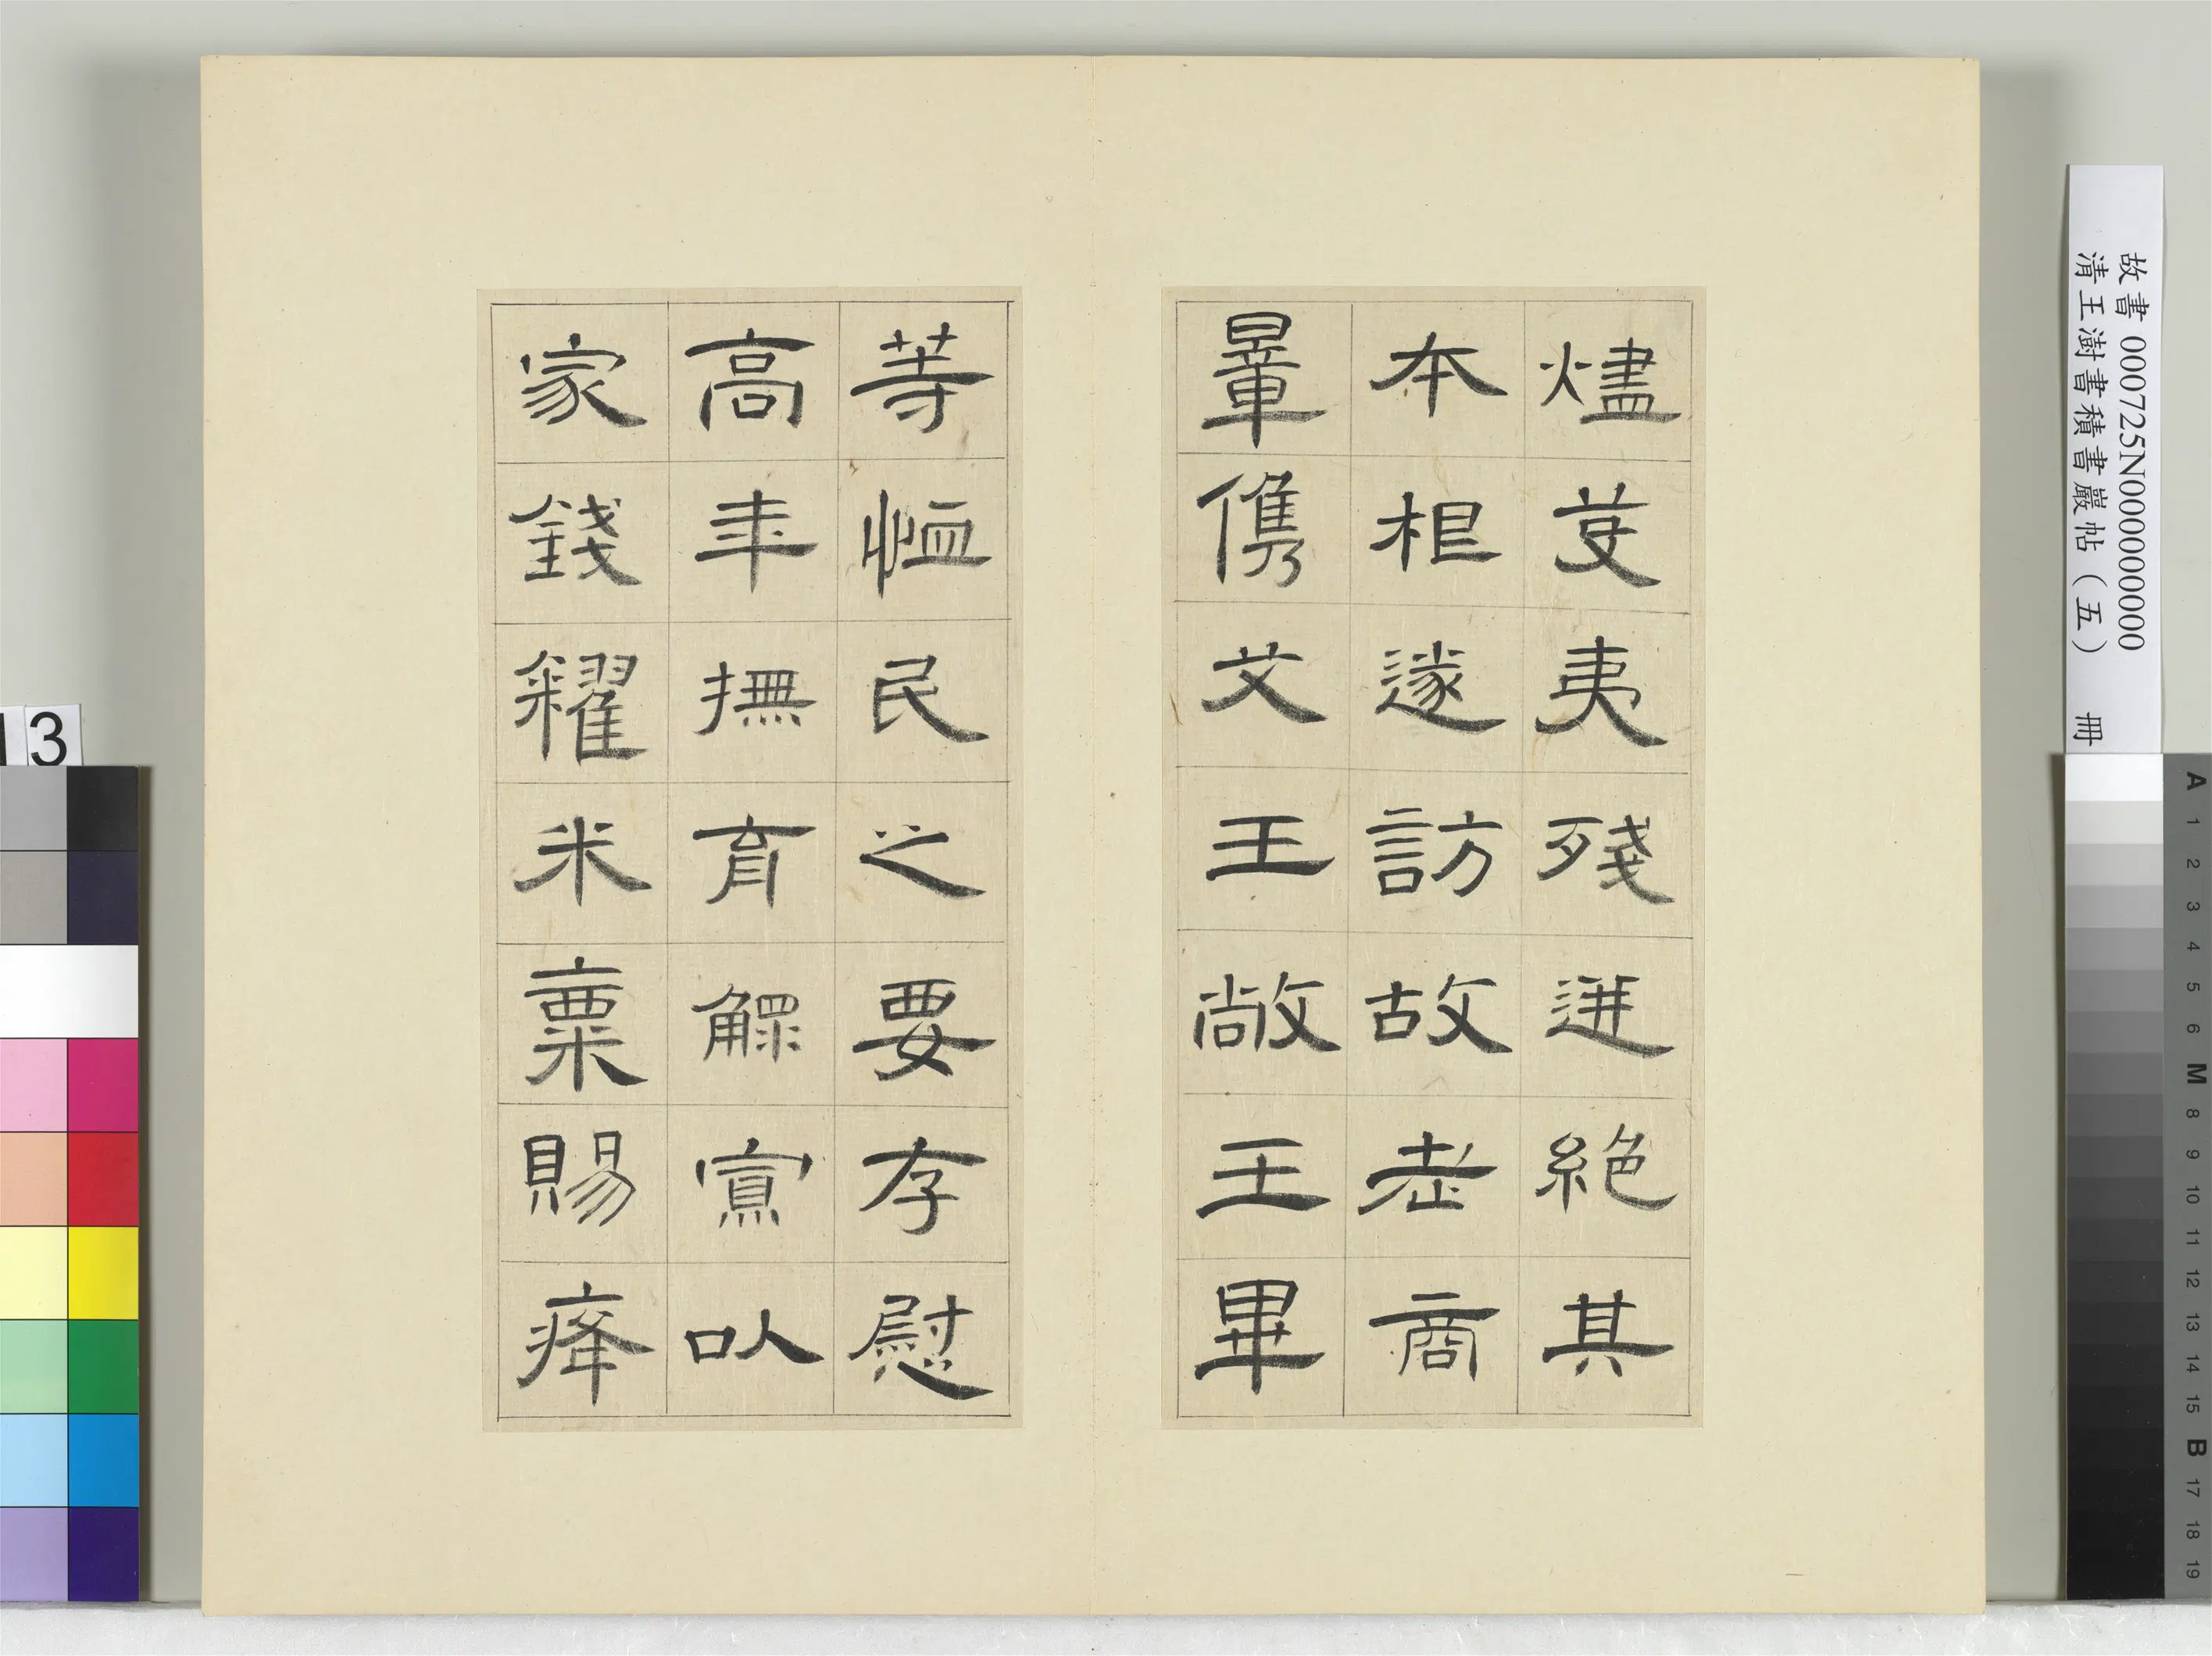 燼芟夷殘迸絕其
本根遂訪故老商
量儁艾王敞王畢
等恤民之要存慰
高年撫育鰥寡以
家錢糴米粟賜癃
故書 000725N000000000
清王澍書積書巖帖（五） 冊
13
A 1 2 3 4 5 6 M 8 9 10 11 12 13 14 15 B 17 18 19